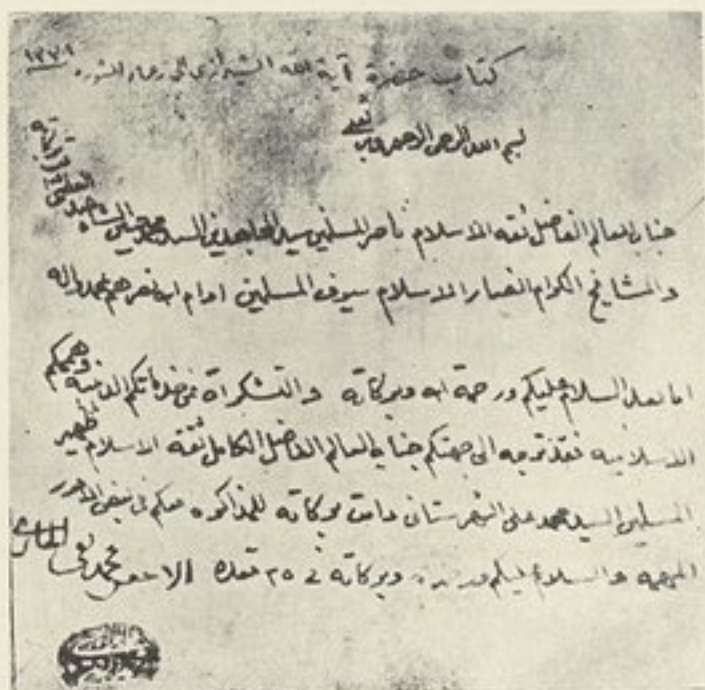 كتاب حضرة آية الله الشيرازي الى زعماء الثورة ١٣٣٨
بسم الله الرحمن الرحيم وبه
جناب العالم الفاضل ثقة الاسلام ناصر المسلمين سيد المجاهدين السيد
والمشايخ الكرام انصار الاسلام سيوف المسلمين ادام الله نصرهم بمحمد واله
اما بعد السلام عليكم ورحمة الله وبركاته والتشكرات من خدماتكم الدينية وهممكم
الاسلامية فقد توجه الى جهتكم جناب العالم الفاضل الكامل ثقة الاسلام ظهير
المسلمين السيد محمد علي الشهرستاني دامت بركاته للمذاكرة معكم في بعض الامور
المهمة والسلام عليكم ورحمة الله وبركاته في ٢٥ قعدة الاحقر محمد تقي الحائري